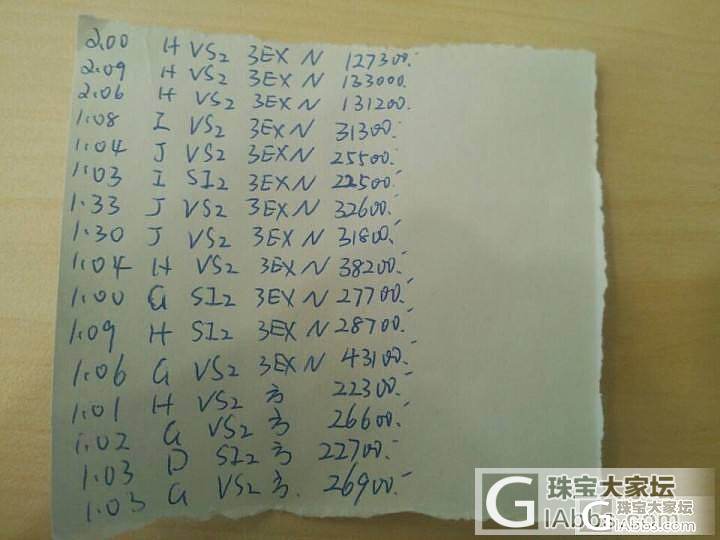 2.00 H VS2 3EX N 127300.-
2.09 H VS2 3EX N 133000.-
2.06 H VS2 3EX N 131200.-
1.08 I VS2 3EX N 31300.-
1.04 J VS2 3EX N 25500.-
1.03 I SI2 3EX N 22500.-
1.33 J VS2 3EX N 32600.-
1.30 J VS2 3EX N 31800.-
1.04 H VS2 3EX N 38200.-
1.00 G SI2 3EX N 27700.-
1.09 H SI2 3EX N 28700.-
1.06 G VS2 3EX N 43100.-
1.01 H VS2 方 22300.-
1.02 G VS2 方 26600.-
1.03 D SI2 方 22700.-
1.03 G VS2 方. 26900.-
珠宝大家坛
GIAbbs.com
珠宝大家坛
GIABBS.COM